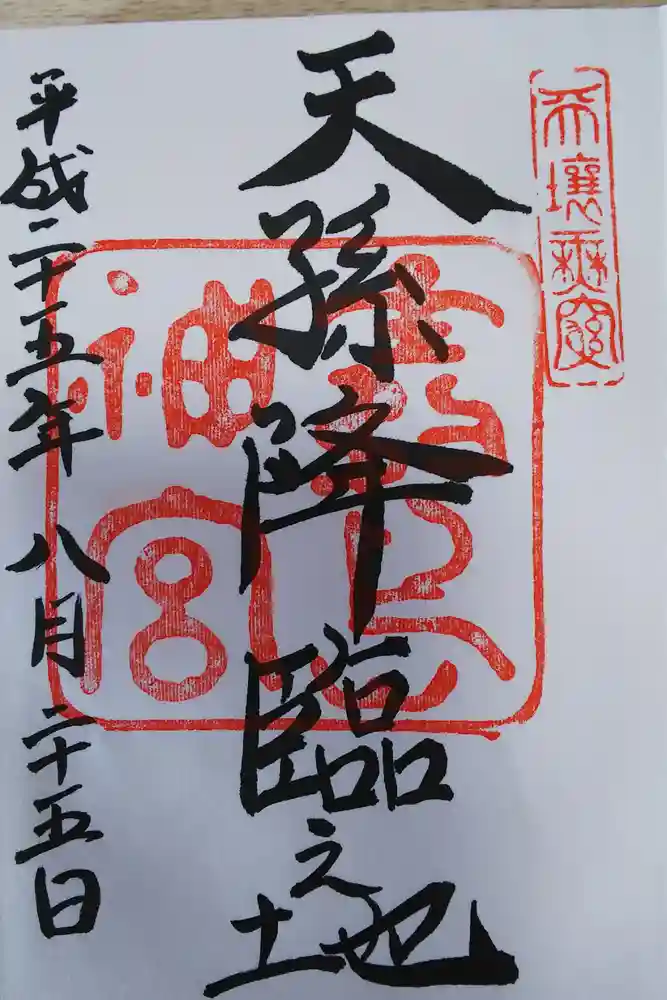 天壤無窮
天孫降臨之地
霧島
神宮
平成二十五年八月二十五日